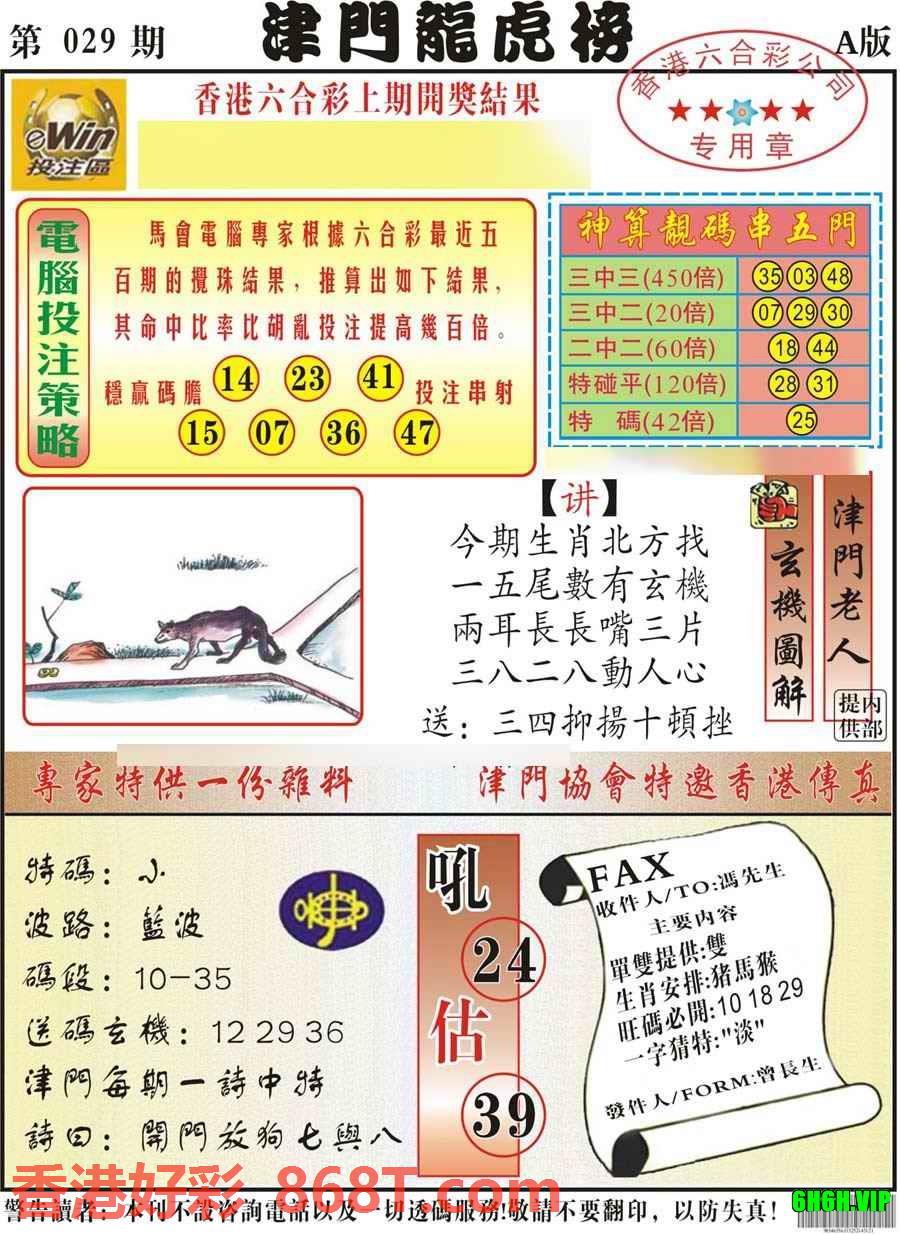 第 029 期
津門龍虎榜
A版
eWin
投注區
香港六合彩上期開獎結果
香港六合彩公司
★★★★
专用章
電腦投注策略
馬會電腦專家根據六合彩最近五
百期的攪珠結果，推算出如下結果，
其命中比率比胡亂投注提高幾百倍。
穩贏碼膽 14 23 41 投注串射
15 07 36 47
神算靚碼串五門
三中三(450倍) 35 03 48
三中二(20倍) 07 29 30
二中二(60倍) 18 44
特碰平(120倍) 28 31
特 碼(42倍) 25
【讲】
今期生肖北方找
一五尾數有玄機
兩耳長長嘴三片
三八二八動人心
送：三四抑揚十頓挫
玄機圖解
津門老人
内部提供
專家特供一份雜料
津門協會特邀香港傳真
特碼：小
波路：藍波
碼段：10-35
送碼玄機：12 29 36
津門每期一詩中特
詩曰：開門放狗七與八
吼
24
估
39
FAX
收件人/TO:馮先生
主要内容
單雙提供:雙
生肖安排:猪馬猴
旺碼必開:10 18 29
一字猜特:"淡"
發件人/FORM:曾長生
香港好彩 868T.com
警告讀者：本刊不設咨詢電話以及一切透碼服務!敬請不要翻印，以防失真!
6H6H.VIP